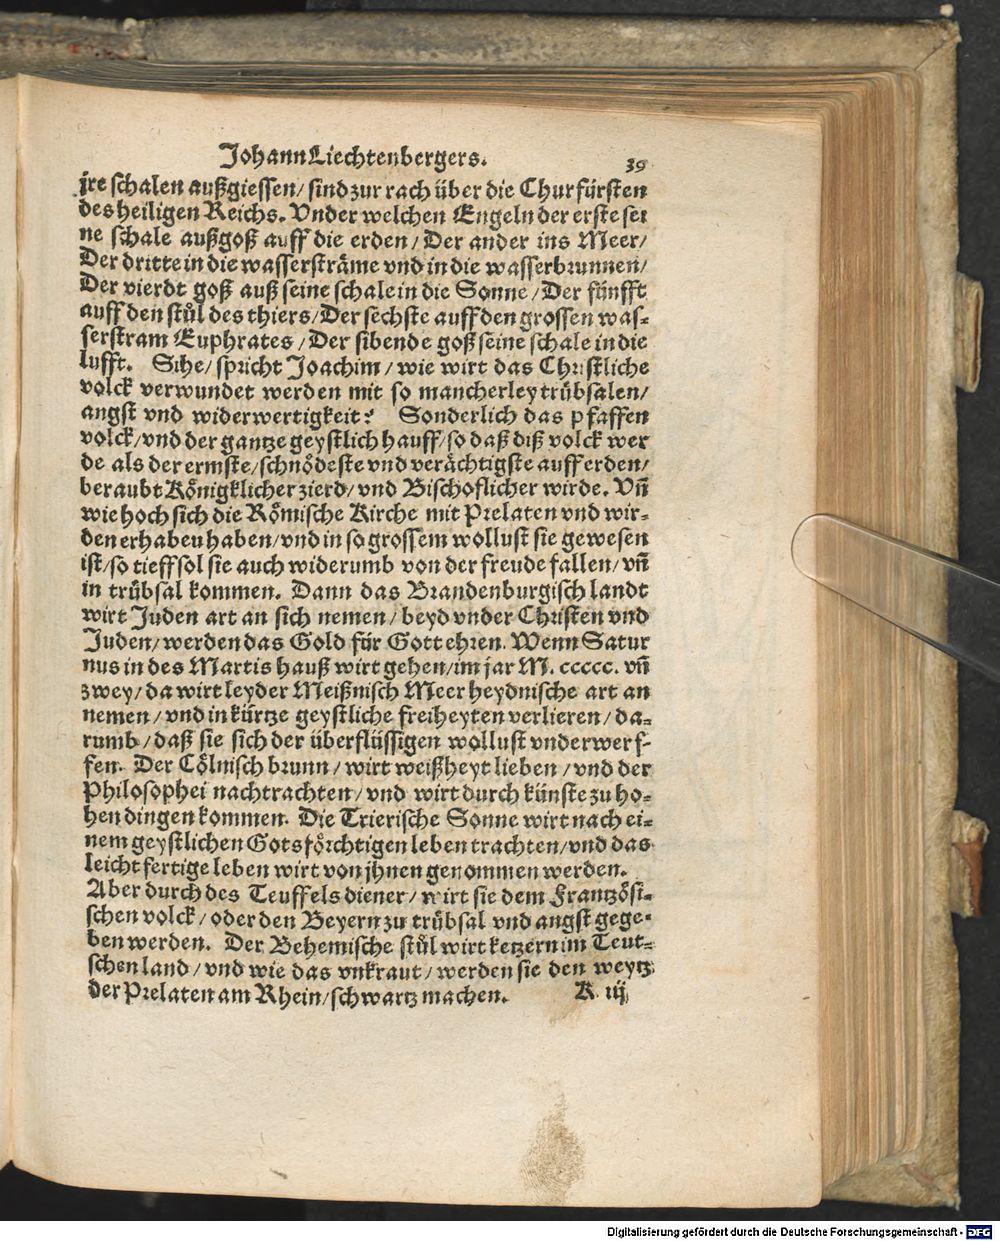 Johann Liechtenbergers. 39
jre schalen außgiessen/ sind zur rach über die Churfürsten
des heiligen Reichs. Vnder welchen Engeln der erste sei
ne schale außgoß auff die erden/ Der ander ins Meer/
Der dritte in die wassersträme vnd in die wasserbrunnen/
Der vierdt goß auß seine schale in die Sonne/ Der fünfft
auff den stůl des thiers/ Der sechste auff den grossen was-
serstram Euphrates/ Der sibende goß seine schale in die
lufft. Sihe/ spricht Joachim/ wie wirt das Christliche
volck verwundet werden mit so mancherley trübsalen/
angst vnd widerwertigkeit? Sonderlich das pfaffen
volck/ vnd der gantze geystlich hauff/ so daß diß volck wer
de als der ermste/ schnödeste vnd verächtigste auff erden/
beraubt Königklicher zierd/ vnd Bischoflicher wirde. Vñ
wie hoch sich die Römische Kirche mit Prelaten vnd wir-
den erhabeu haben/ vnd in so grossem wollust sie gewesen
ist/ so tieff sol sie auch widerumb von der freude fallen/ vñ
in trübsal kommen. Dann das Brandenburgisch landt
wirt Juden art an sich nemen/ beyd vnder Christen vnd
Juden/ werden das Gold für Gott ehren. Wenn Satur
nus in des Martis hauß wirt gehen/ im jar M. ccccc. vñ
zwey/ da wirt leyder Meißnisch Meer heydnische art an
nemen/ vnd in kürtze geystliche freiheyten verlieren/ da-
rumb/ daß sie sich der überflüssigen wollust vnderwerf-
fen. Der Cölnisch brunn/ wirt weißheyt lieben/ vnd der
Philosophei nachtrachten/ vnd wirt durch künste zu ho-
hen dingen kommen. Die Trierische Sonne wirt nach ei-
nem geystlichen Gotsförchtigen leben trachten/ vnd das
leichtfertige leben wirt von jhnen genommen werden.
Aber durch des Teuffels diener/ wirt sie dem Frantzösi-
schen volck/ oder den Beyern zu trübsal vnd angst gege-
ben werden. Der Behemische stůl wirt ketzern im Teut-
schen land/ vnd wie das vnkraut/ werden sie den weytz
der Prelaten am Rhein/ schwartz machen. K iij
Digitalisierung gefördert durch die Deutsche Forschungsgemeinschaft - DFG